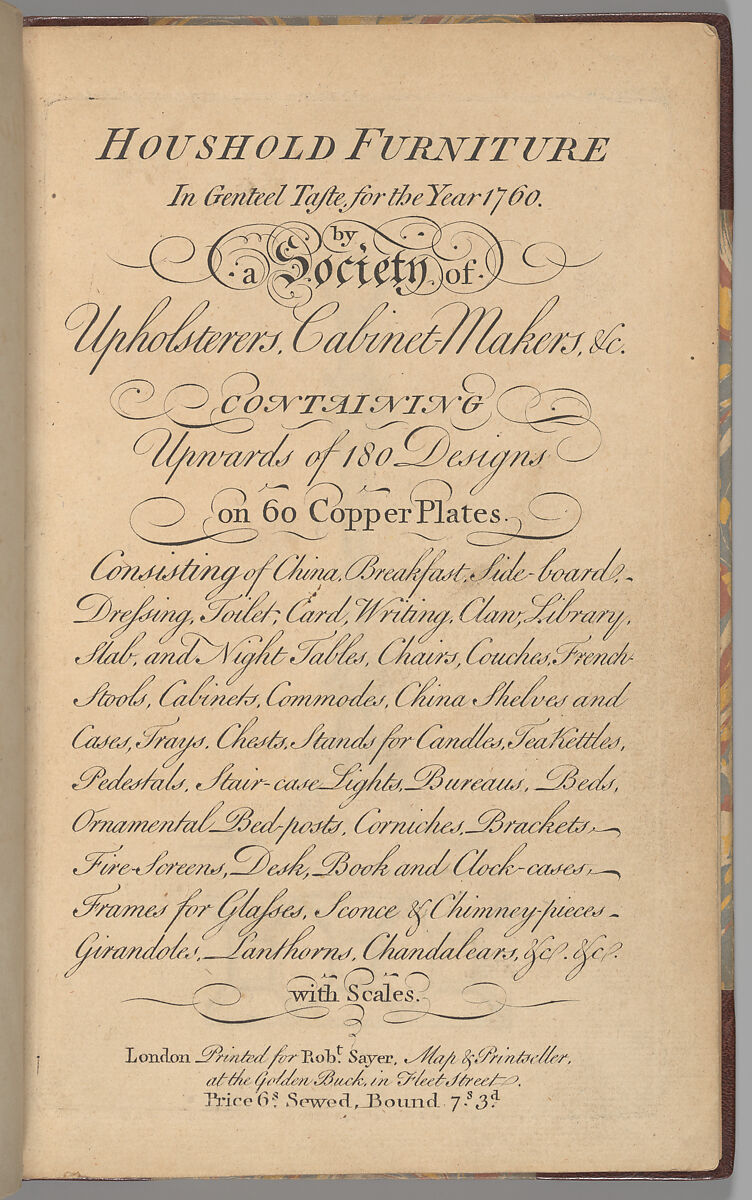 HOUSHOLD FURNITURE
In Genteel Taſte, for the Year 1760.
by
a Society of
Upholsterers, Cabinet-Makers, &c.
CONTAINING
Upwards of 180 Designs
on 60 Copper Plates.
Consisting of China, Breakfast, Side-board,
Dreſsing, Toilet, Card, Writing, Claw, Library,
Slab, and Night Tables, Chairs, Couches, French-
Stools, Cabinets, Commodes, China Shelves and
Cases, Trays, Chests, Stands for Candles, Tea Kettles,
Pedestals, Stair-case Lights, Bureaus, Beds,
Ornamental Bed-posts, Corniches, Brackets,
Fire-Screens, Desk, Book and Clock-cases,
Frames for Glaſses, Sconce & Chimney-pieces
Girandoles, Lanthorns, Chandalears, &c. &c.
with Scales.
London Printed for Robt. Sayer, Map & Printseller,
at the Golden Buck, in Fleet Street.
Price 6s. Sewed, Bound 7s. 3d.